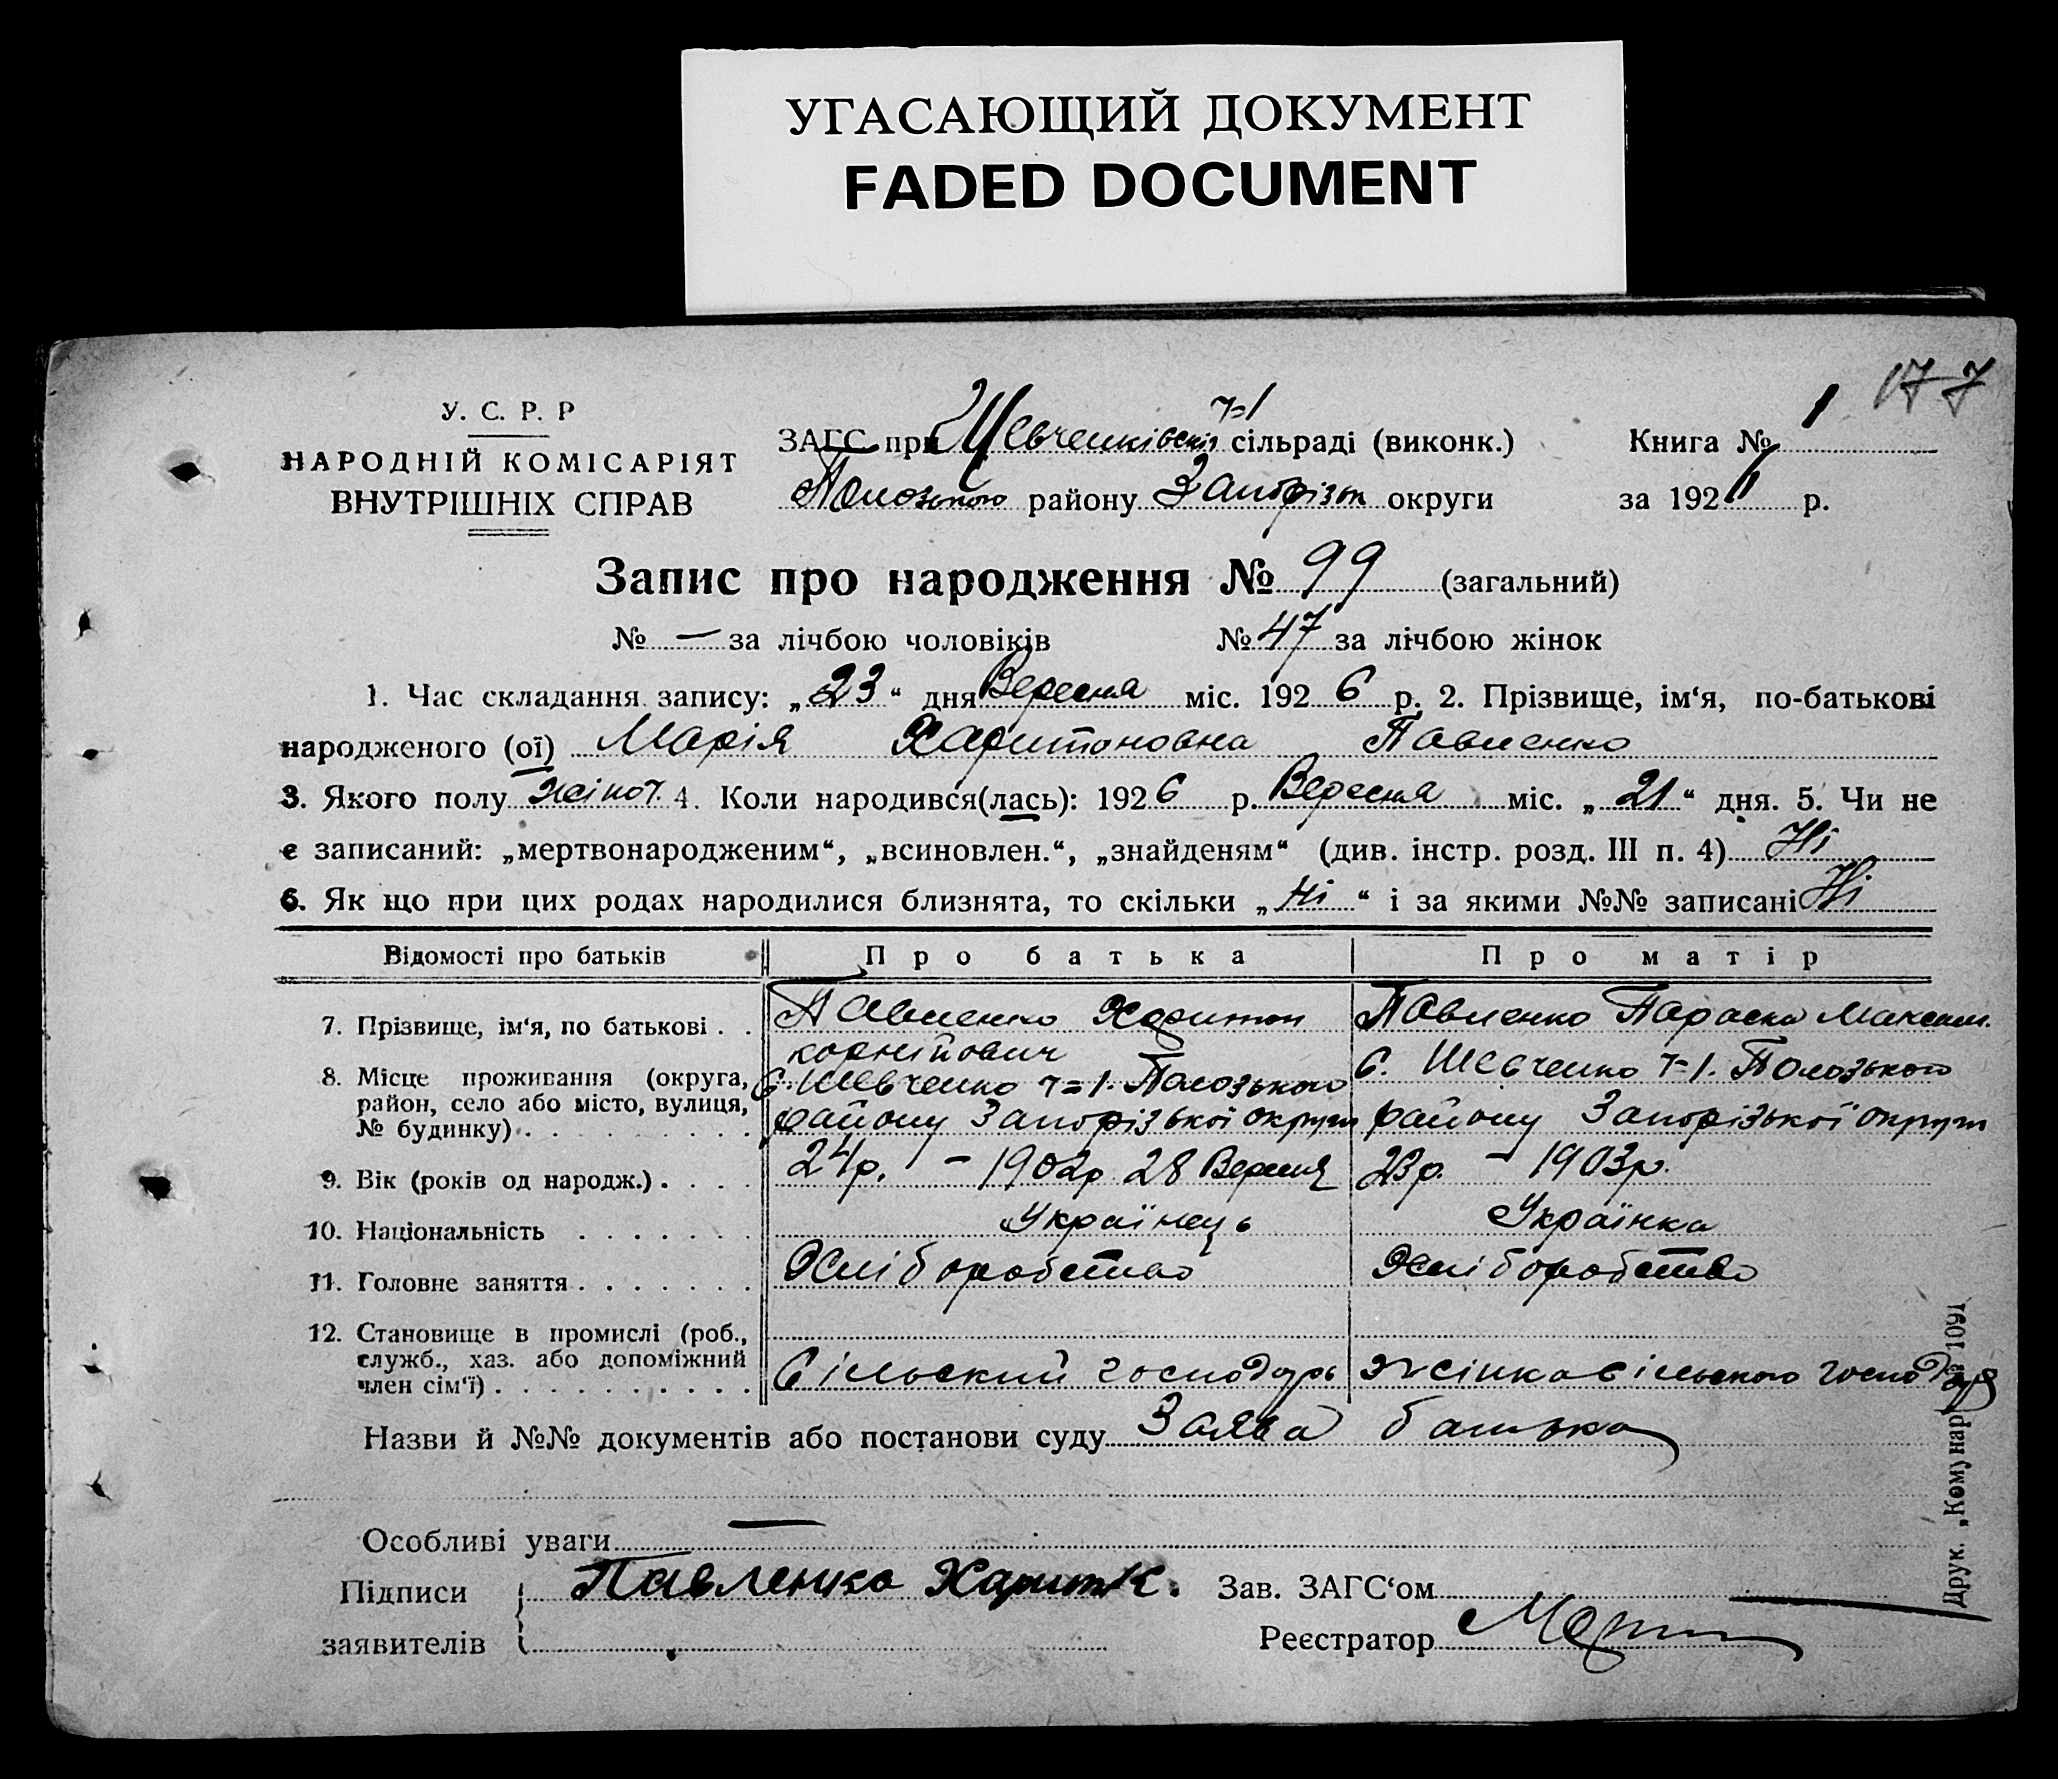 УГАСАЮЩИЙ ДОКУМЕНТ
FADED DOCUMENT
177
У. С. Р. Р
НАРОДНІЙ КОМІСАРІЯТ
ВНУТРІШНІХ СПРАВ
ЗАГС при Шевченківскій ч=1 сільраді (виконк.) Книга № 1
Полозького району Запорізьк округи за 1926 р.
Запис про народження № 99 (загальний)
№ — за лічбою чоловіків № 47 за лічбою жінок
1. Час складання запису: „23“ дня Вересня міс. 1926 р. 2. Прізвище, ім‘я, по-батькові
народженого (ої) Марія Харитоновна Павленко
3. Якого полу жіноч. 4. Коли народився(лась): 1926 р. Вересня міс. „21“ дня. 5. Чи не
є записаний: „мертвонародженим“, „всиновлен.“, „знайденям“ (див. інстр. розд. III п. 4) Ні
6. Як що при цих родах народилися близнята, то скільки „Ні“ і за якими №№ записані Ні
Відомості про батьків Про батька Про матір
7. Прізвище, ім‘я, по батькові . . Павленко Харитон Корнійович Павленко Параска Максим.
8. Місце проживання (округа, район, село або місто, вулиця, № будинку) . С. Шевченко ч=1. Полозького району Запорізької округи С. Шевченко ч=1. Полозького району Запорізької округи
9. Вік (років од народж.) . . . . 24р. — 1902р 28 Вересня 23р. — 1903р.
10. Національність . . . . . . . Українець Українка
11. Головне заняття . . . . . . . Хліборобство Хліборобство
12. Становище в промислі (роб., служб., хаз. або допоміжний член сім‘ї) . Сільский господарь жінка сільского господаря
Назви й №№ документів або постанови суду Заява батька
Особливі уваги —
Підписи Павленко Харит К. Зав. ЗАГС‘ом
заявителів Реєстратор
Друк. „Комунар“ 1091